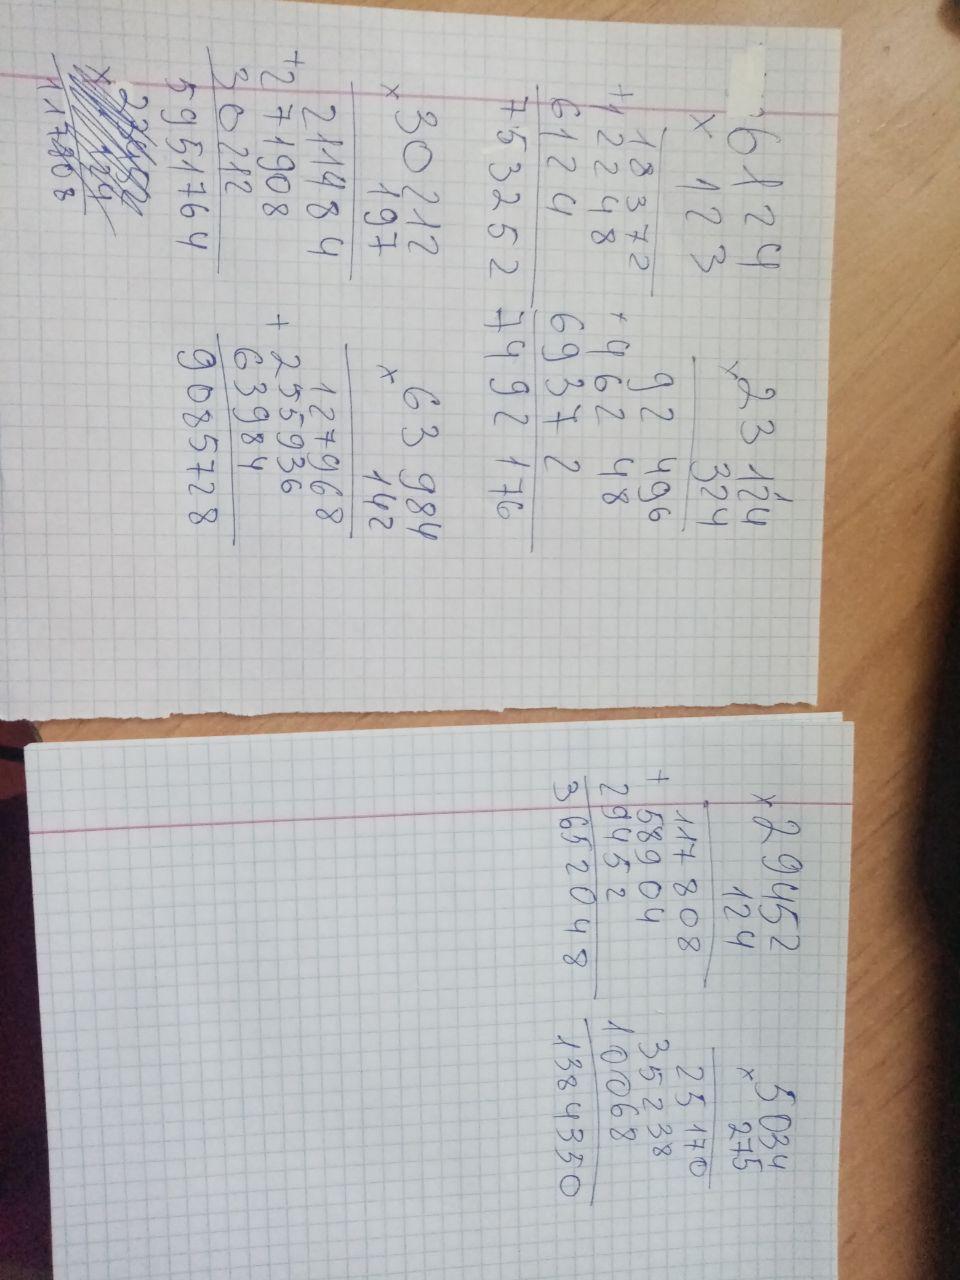 6124
× 123
18372
+12248
6124
753252
×23124
324
92496
+46248
69372
7492176
30212
×197
211484
+271908
30212
5951764
63984
×142
127968
+255936
63984
9085728
117808
×29452
124
117808
+58904
29452
3652048
5034
×275
25170
35238
10068
1384350